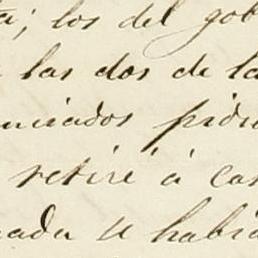 ta; los del gob
las dos de la
unciados pidi
retiré á cas
nada se habia